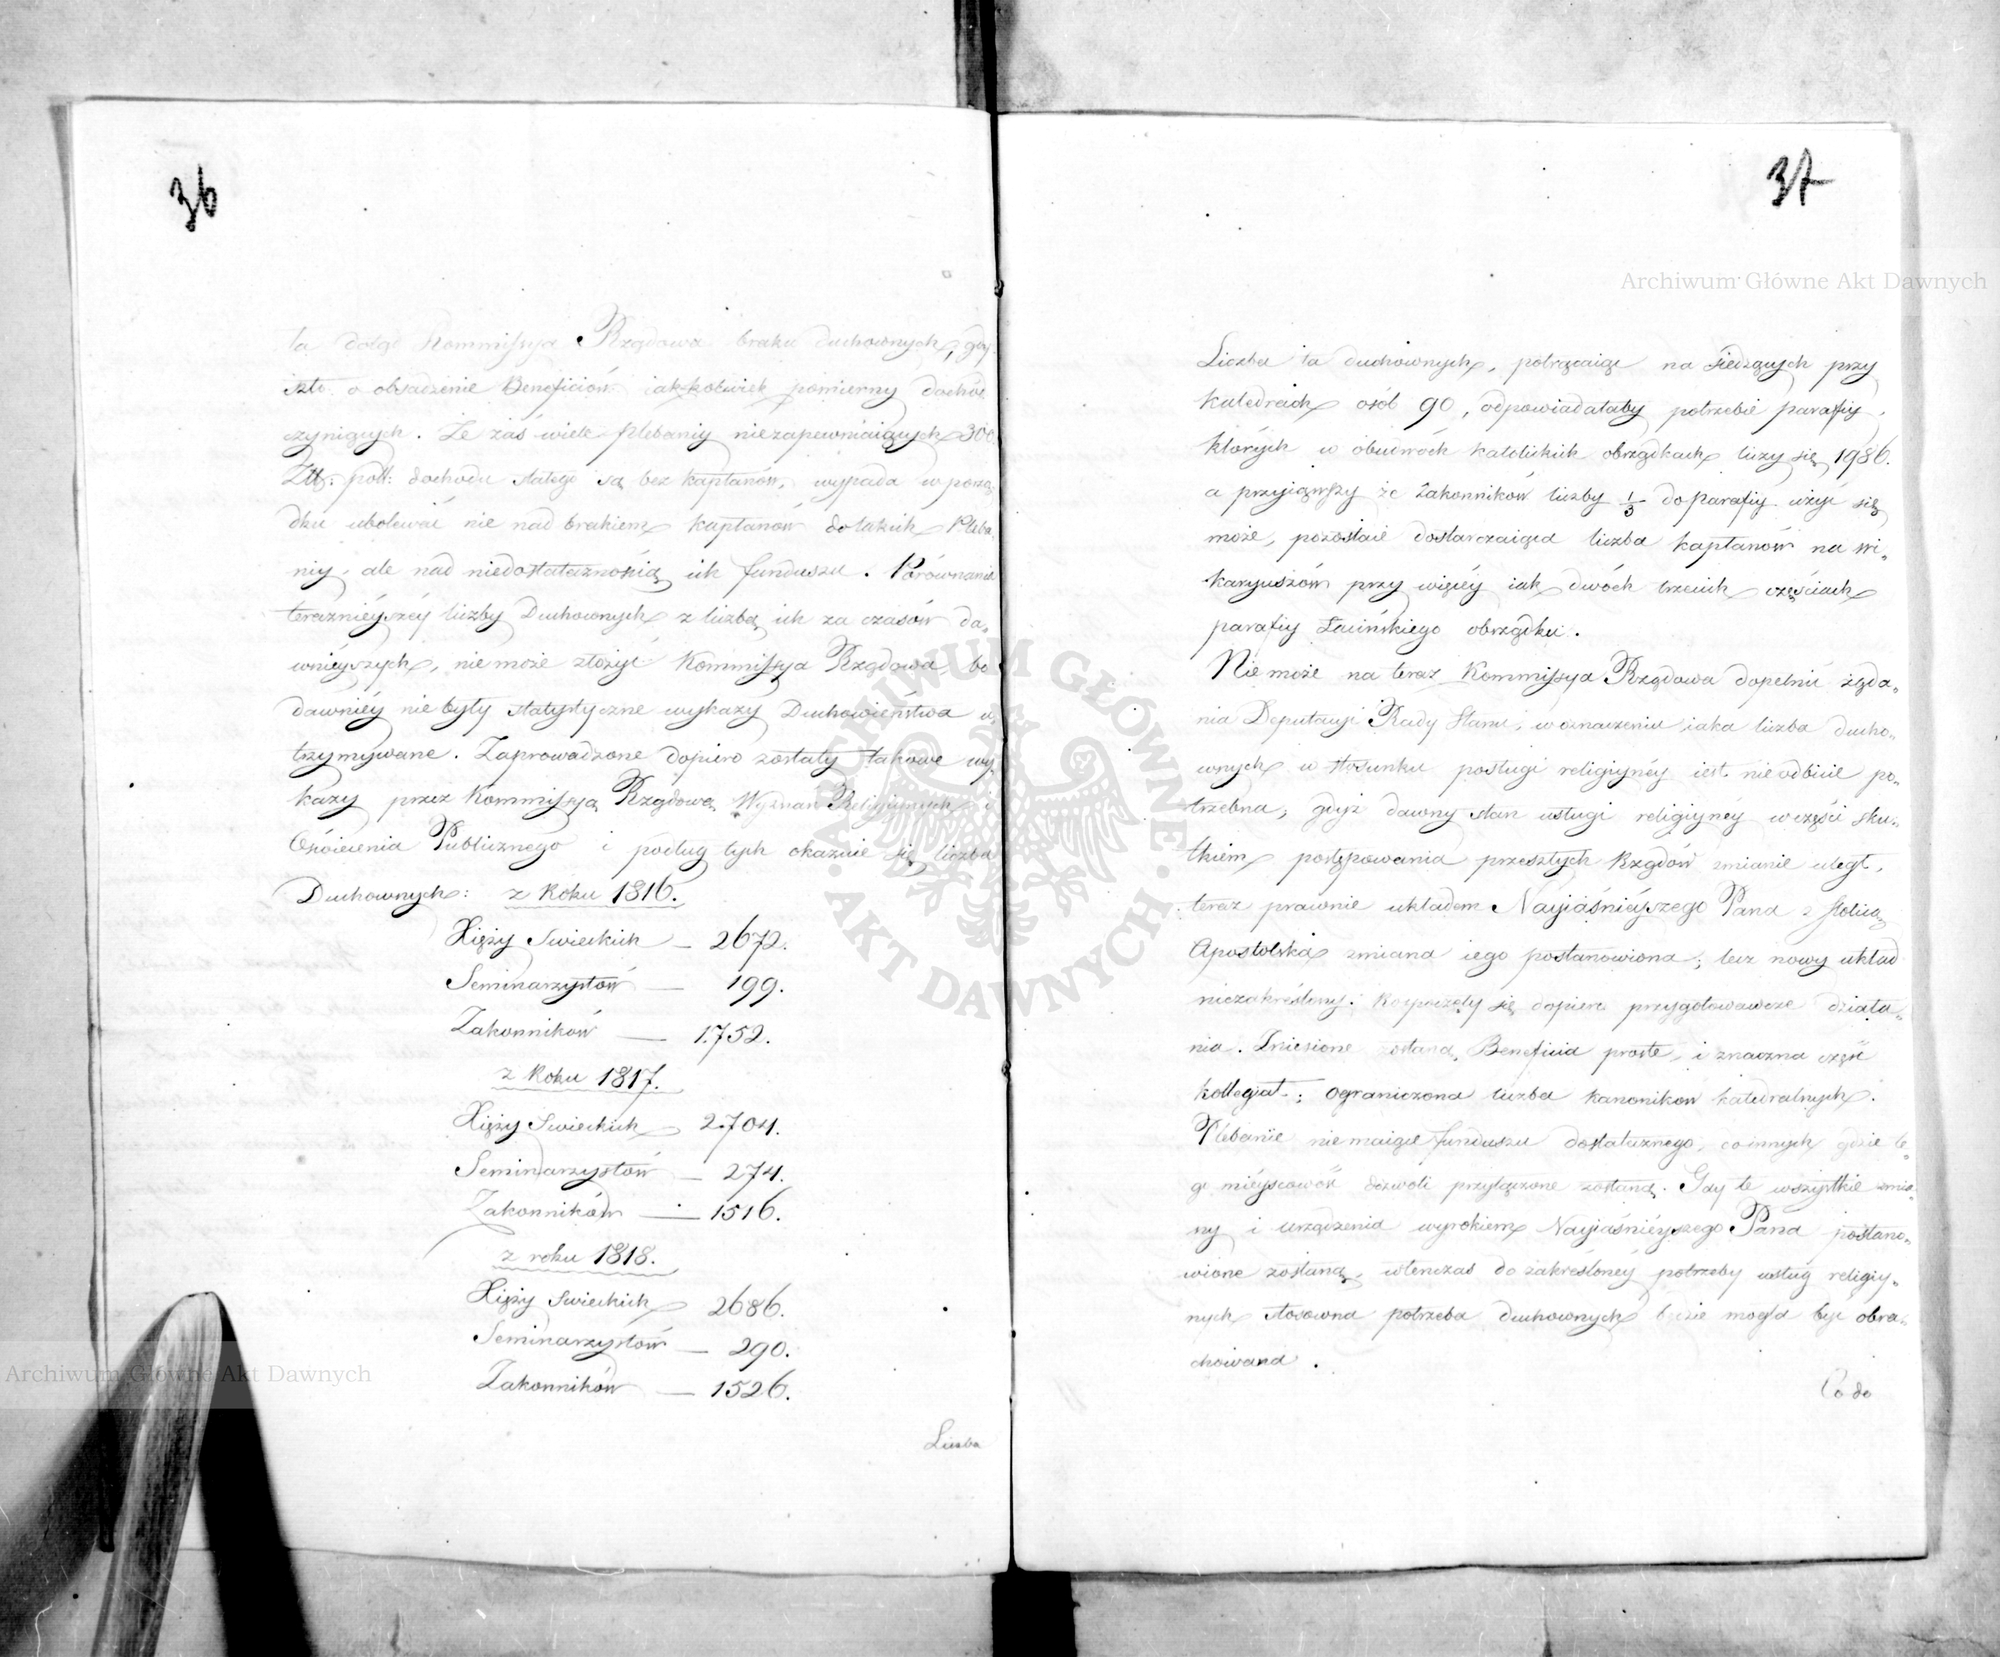 36
ta dotąd Kommissya Rządowa braku duchownych, gdy
szło o obsadzenie Beneficiów iakkolwiek pomierny dochód
czyniących. Że zaś wiele Plebaniy niezapewniaiących 300
Złt: pol: dochodu stałego są bez kapłanów, wypada w porzą
dku ubolewać nie nad brakiem kapłanów do takich Pleba-
niy, ale nad niedostatecznością ich funduszu. Porównania
teraznieyszéy liczby Duchownych z liczbą ich za czasów da„
wnieyszych, nie może złożyć Kommissya Rządowa, bo
dawniéy nie były statystyczne wykazy Duchowieństwa u„
trzymywane. Zaprowadzone dopiero zostały takowe wy„
kazy przez Kommissyą Rządową Wyznań Religiynych i
Oświecenia Publicznego i podług tych okazuie się liczba
Duchownych: z Roku 1816.
Xięży Swieckich — 2672.
Seminarzystów — 199.
Zakonników — 1752.
z Roku 1817.
Xięży Swieckich — 2704.
Seminarzystów — 274.
Zakonników — 1516.
z roku 1818.
Xięży Swieckich 2686.
Seminarzystów — 290.
Zakonników — 1526.
Liczba
37
Liczba ta duchownych, potrącaiąc na siedzących przy
katedrach osób 90, odpowiadałaby potrzebie parafiy,
których w obudwóch katolickich obrządkach liczy się 1986.
a przyiąwszy że Zakonników liczby 1/3 do parafiy użyć się
może, pozostaie dostarczaiąca liczba kapłanów na wi„
karyuszów przy więcéy iak dwóch trzecich częściach
parafiy Łacińskiego obrządku.
Nie może na teraz Kommissya Rządowa dopełnić żąda„
nia Deputacyi Rady Stanu, w oznaczeniu iaka liczba ducho„
wnych w stosunku posługi religiynéy iest nieodbicie po„
trzebna; gdyż dawny stan usługi religiynéy w części sku„
tkiem postępowania przeszłych Rządów zmianie uległ,
teraz prawnie układem Nayiaśnieyszego Pana z Stolicą
Apostolską zmiana iego postanowiona; lecz nowy układ
niezakreślony. Rozpoczęły się dopiero przygotowawcze działa„
nia. Zniesione zostaną Beneficia proste, i znaczna część
kollegiat; ograniczona liczba kanonikow katedralnych.
Plebanie niemaiące funduszu dostatecznego, do innych gdzie te„
go mieyscowość dozwoli przyłączone zostaną. Gdy te wszystkie zmia„
ny i urządzenia wyrokiem Nayiaśnieyszego Pana postano„
wione zostaną, wtenczas do zakreślonéy potrzeby usług religiy„
nych stosowna potrzeba duchownych będzie mogła być obra„
chowana.
Co do
Archiwum Główne Akt Dawnych
Archiwum Główne Akt Dawnych
ARCHIWUM GŁÓWNE
AKT DAWNYCH